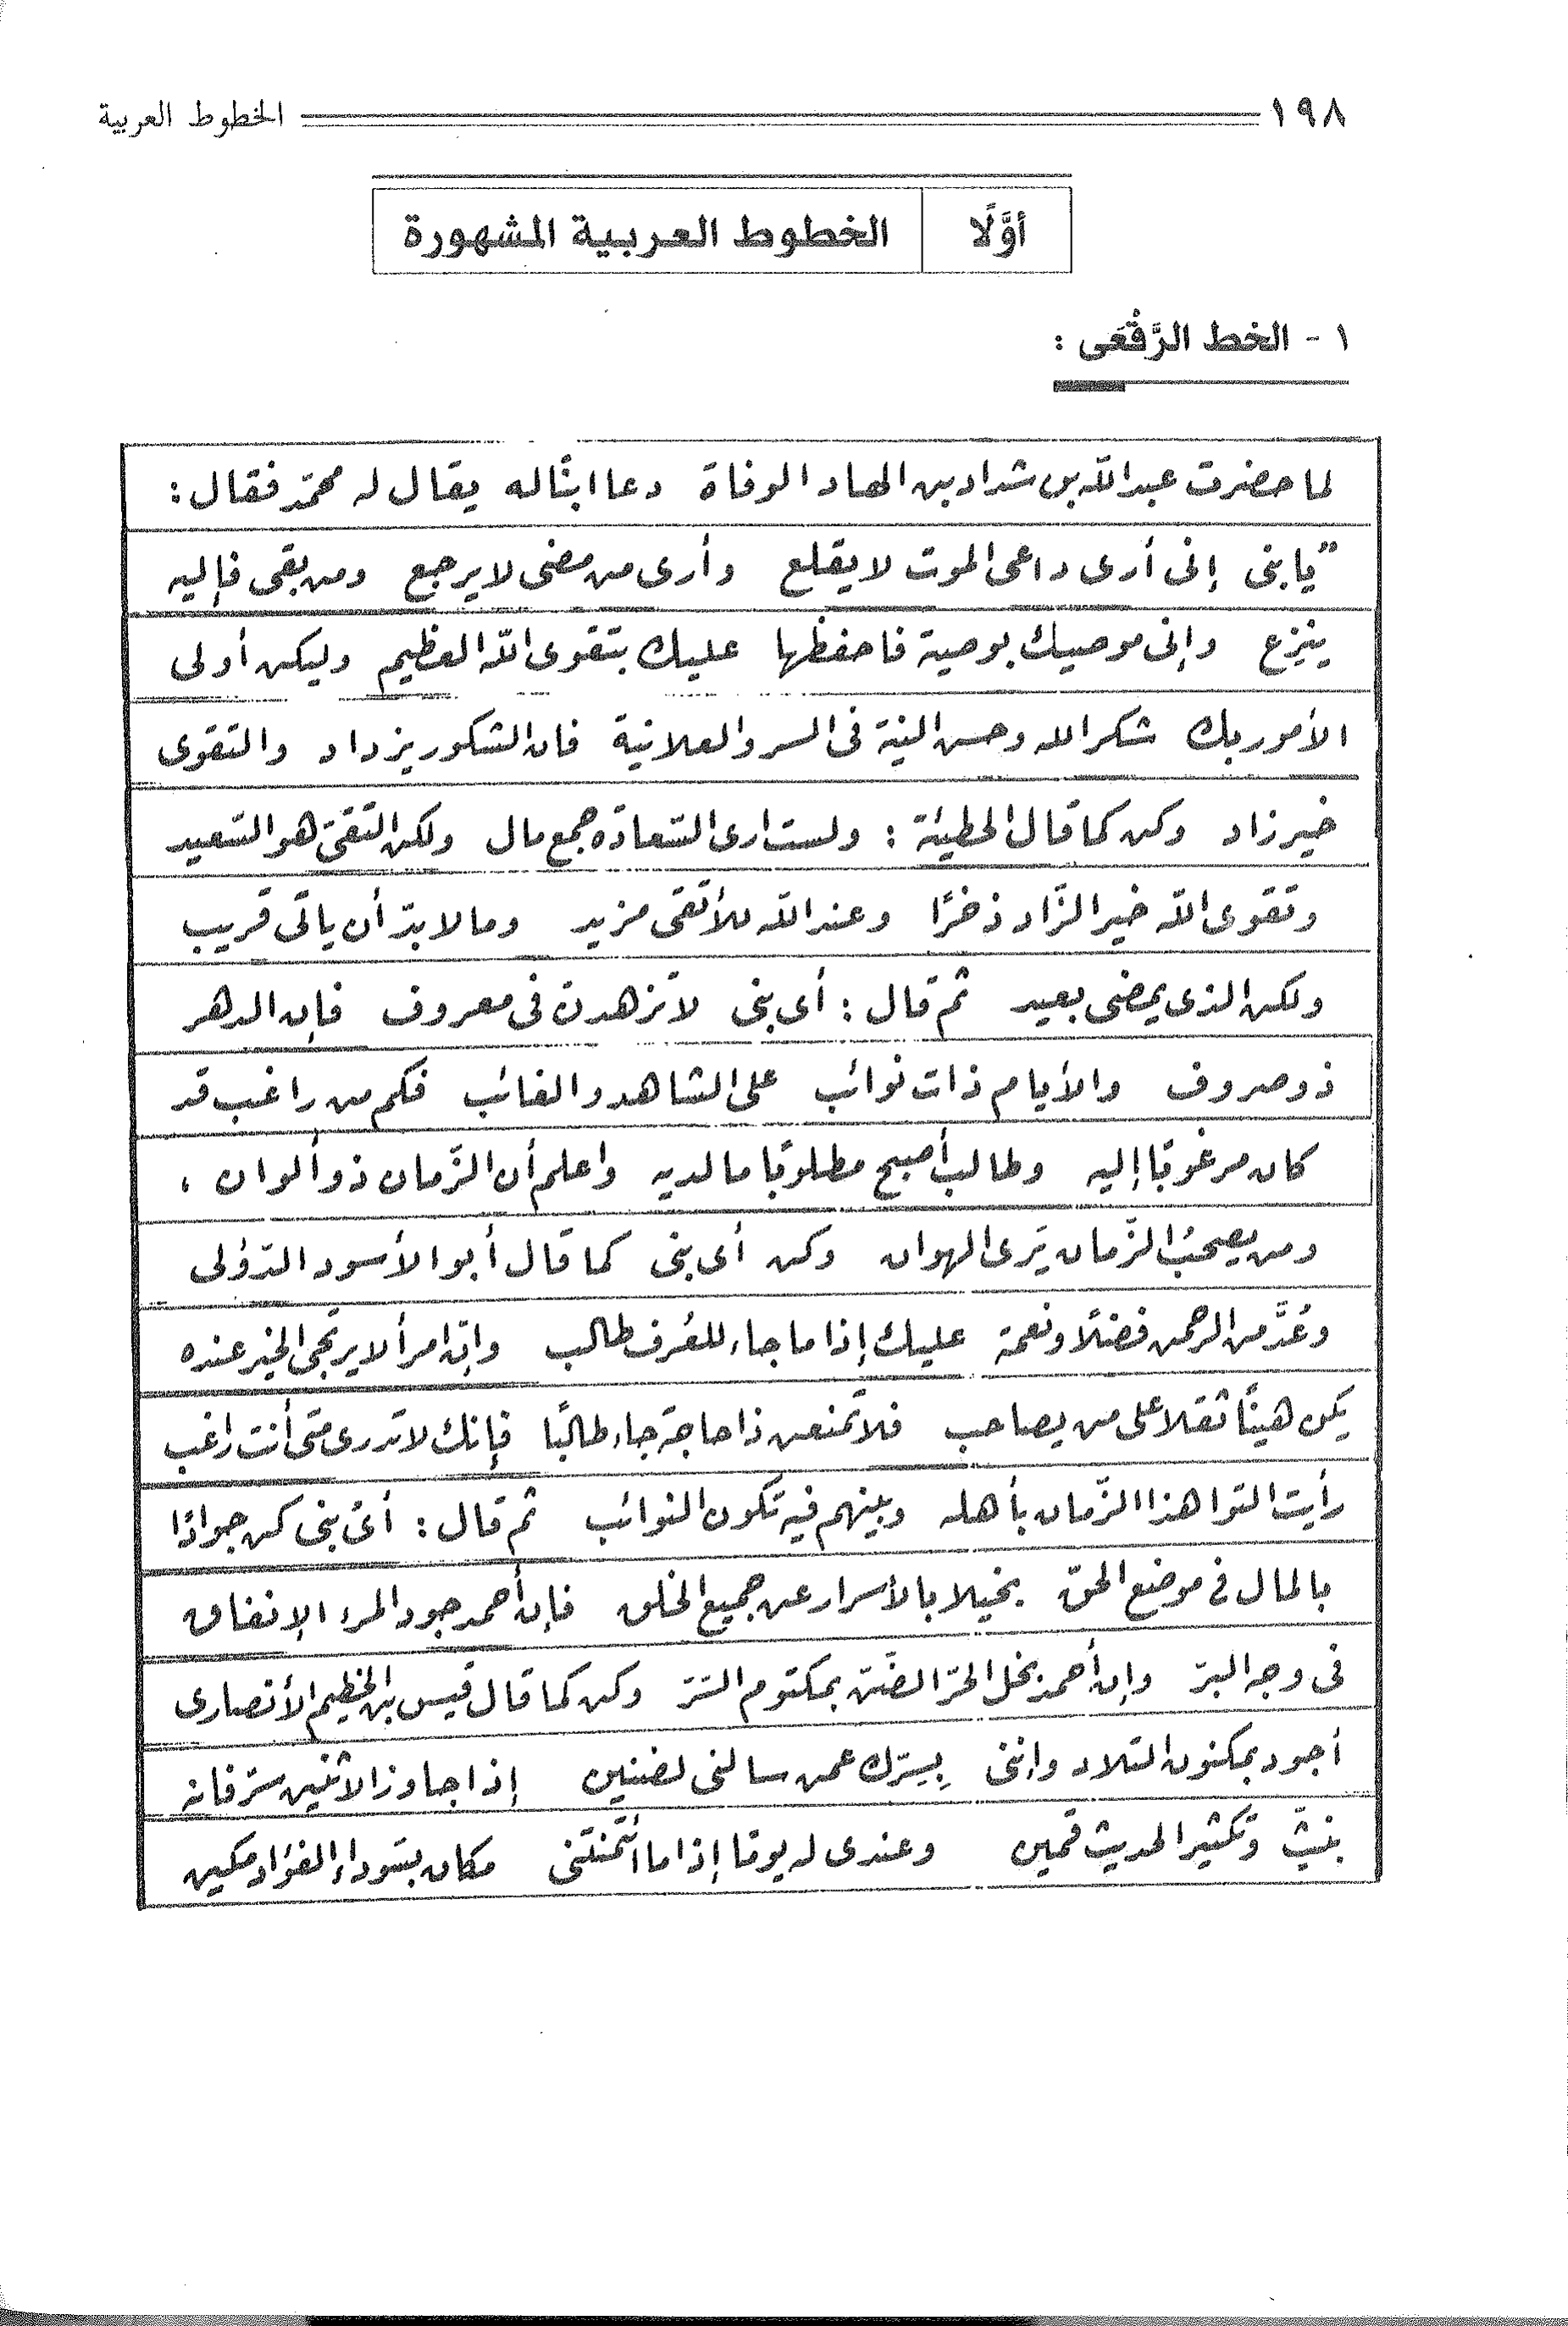 ١٩٨ الخطوط العربية
أوَّلًا الخطوط العربية المشهورة
١ - الخط الرَّقْعَى :
لما حضرت عبد الله بن شداد بن الهاد الوفاة دعا ابنًا له يقال له محمّد فقال :
"يا بنى إنى أرى داعى الموت لا يقلع وأرى من مضى لا يرجع ومن بقى فإليه
ينزع وإنى موصيك بوصية فاحفظها عليك بتقوى الله العظيم وليكن أولى
الأمور بك شكر الله وحسن النية فى السر والعلانية فان الشكور يزداد والتقوى
خير زاد وكن كما قال الحطيئة : ولست ارى السّعادة جمع مال ولكن التقىّ هو السّعيد
وتقوى الله خير الزّاد ذخرًا وعند الله للأتقى مزيد وما لابدّ أن ياتى قريب
ولكن الذى يمضى بعيد ثم قال : أى بنى لا تزهدن فى معروف فإن الدهر
ذو صروف والأيام ذات نوائب على الشاهد والغائب فكم من راغب قد
كان مرغوبًا إليه وطالب أصبح مطلوبًا ما لديه واعلم أن الزّمان ذو ألوان ،
ومن يصحبُ الزّمان يَرى الهوان وكن أى بنى كما قال أبو الأسود الدّؤلى
وعُدَّ من الرحمن فضلًا ونعمة عليك إذا ما جاء للعُرف طالب وانّ امرأ لا يرتجى الخير عنده
يكن هينًا ثقلا على من يصاحب فلا تمنعن ذا حاجة جاء طالبًا فإنك لا تدرى متى أنت راغب
رأيت التوا هذا الزّمان بأهله وبينهم فيه تكون النوائب ثم قال : أى بنى كن جوادًا
بالمال فى موضع الحقّ بخيلا بالأسرار عن جميع الخلق فإن أحمد جود المرء الإنفاق
فى وجه البرّ وإن أحمد بخل الحرّ الضّن بمكتوم السّرّ وكن كما قال قيس بن الخطيم الأنصارى
أجود بمكنون التلاد وانّنى بِسِرّك عمن سالنى لضنين إذا جاوز الاثنين سّر فانه
بنثّ وتكثير الحديث قمين وعندى له يومًا إذا ما ائتمنتنى مكان بسَوداء الفؤاد مكين